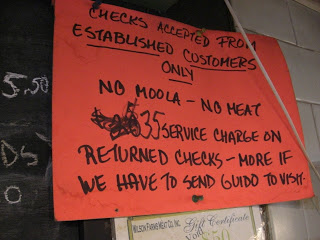 CHECKS ACCEPTED FROM
ESTABLISHED CUSTOMERS
ONLY
NO MOOLA - NO MEAT
35 SERVICE CHARGE ON
RETURNED CHECKS - MORE IF
WE HAVE TO SEND GUIDO TO VISIT.
5.50
DS
0
WILSON FARMS MEAT CO. INC.
Gift Certificate